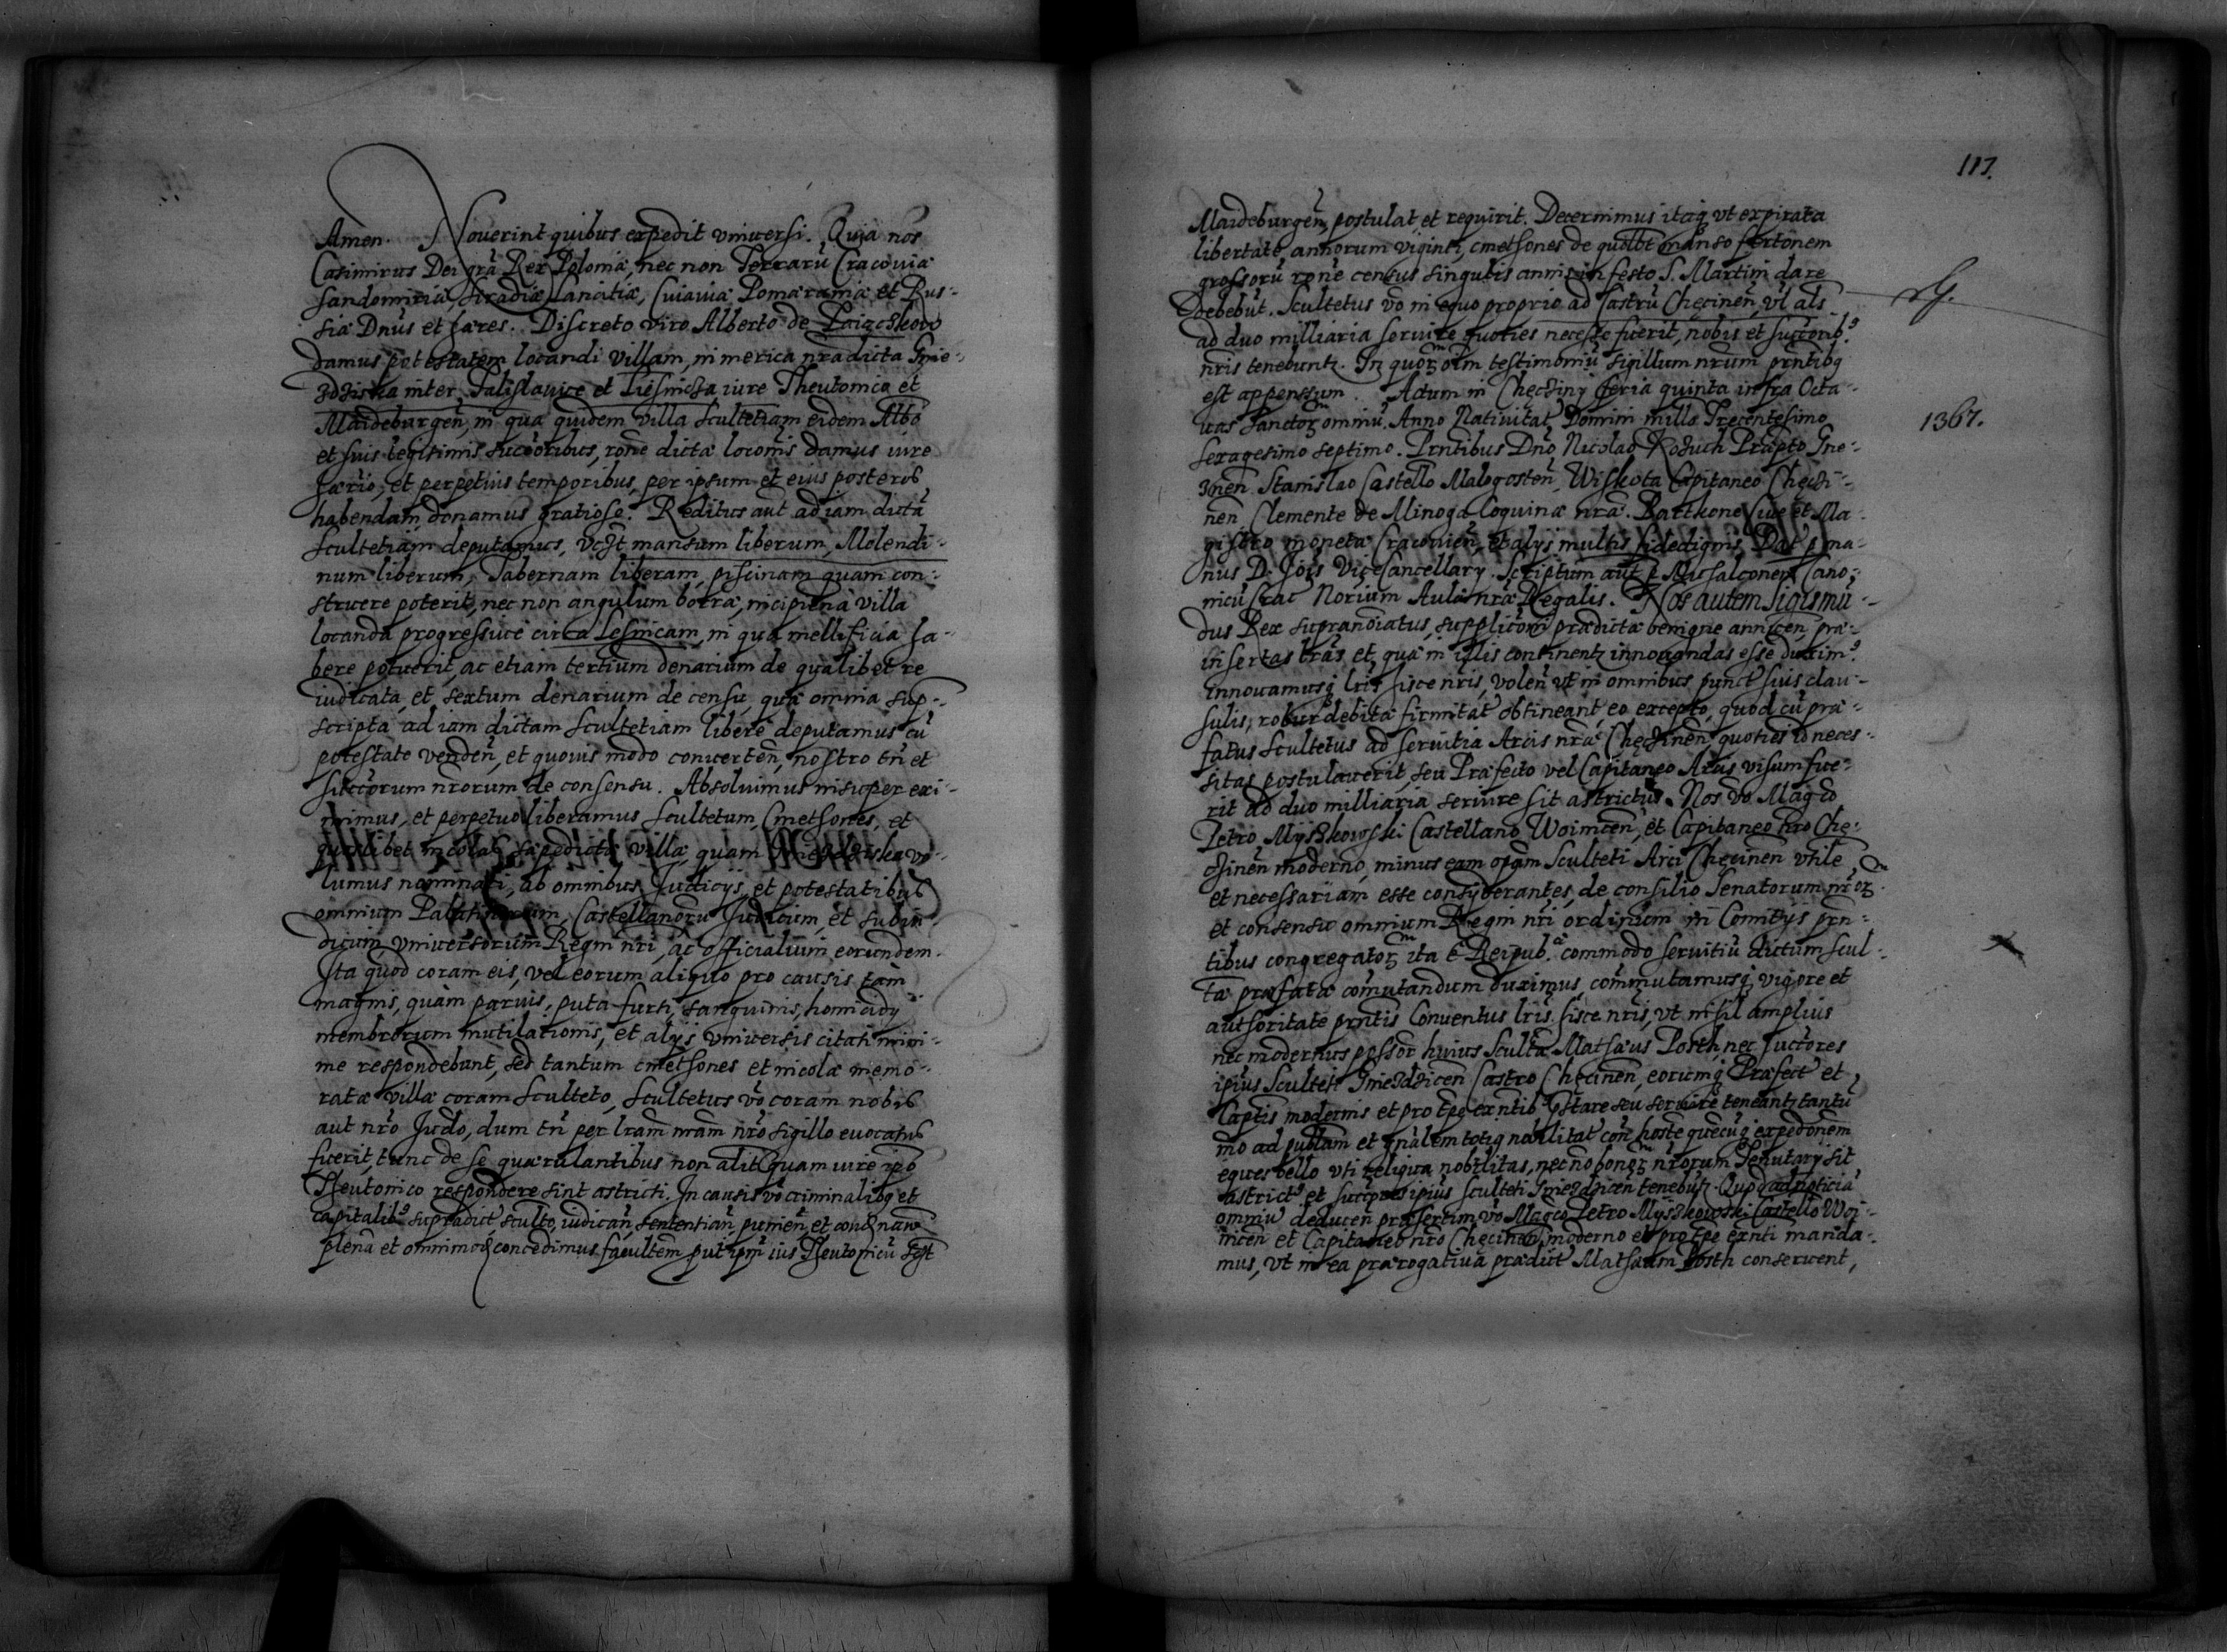 Amen. Nouerint quibus expedit vniuersi. Quia nos
Casimirus Dei grã Rex Poloniæ, nec non Terrarũ Cracouiæ
Sandomiriæ, Siradiæ Lanciciæ, Cuiauiæ Pomeraniæ et Rus-
siæ Dnũs et hæres. Discreto viro Alberto de
damus potestatem locandi villam, in merica nrã dicta Gnie-
zdziska inter et iure Theutonico et
Maideburgeñ, in qua quidem villa scultetiam eidem Albõ
et suis legitimis succõribus, rõne dictæ locõnis damus iure
hærio, et perpetuis temporibus, per ipsum et eius posteros
habendam donamus gratiose. Reditus aut ad iam dictã
scultetiam deputamus, vczt mansum liberum, Molendi-
num liberum, Tabernam liberam, piscinam quam con-
struere poterit, nec non angulum borræ, incipienã villa
locanda progressiue circa Lesnicam, in qua mellificia ha-
bere potuerit, ac etiam tertium denarium de qualibet re
iudicata, et sextum denarium de censu, quæ omnia sup-
scripta ad iam dictam scultetiam libere deputamus cũ
potestate vendeñ, et quouis modo conuerteñ, nostro tñ et
succõrum nrõrum de consensu. Absoluimus insuper exi-
mimus, et perpetuo liberamus Scultetum, Cmethones, et
quoslibet incolas sæpedictæ villæ, quam Gniezdziska vo-
lumus nominari, ab omnibus Judicijs, et potestatibus
omnium Palatinorum, Castellanorũ Judicum, et subiu-
dicum, vniuersorum Regni nri, ac officialium eorundem.
Ita quod coram eis, vel eorum aliquo pro causis tam
magnis, quàm paruis, puta furti, sanguinis, homicidij
membrorum mutilationis, et alijs vniuersis citati mini-
me respondebunt, sed tantum cmethones et incolæ memo-
ratæ villæ coram Sculteto, Scultetus vo coram nobis
aut nrõ Judõ, dum tñ per lrãm nrãm nrõ sigillo euocatus
fuerit, tunc de se quærulantibus non alit quam iure ipõ
Theutonico respondere sint astricti. In causis vo criminalibq et
capitalibq suprædict sculto, iudicañ, sententiañ, punieñ, et condnañ
plenã et omnimod concedimus facultẽm put ipm ius Theutonicũ szt
113.
Maideburgeñ, postulat et requirit. Decernimus itaq vt expirata
libertate, annorum viginti, cmethones de quolibt manso fertonem
grossorũ rõne census singulis annis in festo S. Martini dare
debebũt. Scultetus vo in equo proprio ad Castrũ Chęcineñ, vl als
ad duo milliaria seruire quoties necesse fuerit, nobis et succõribq
nris tenebuntr. In quorz om testimoniũ sigillum nrum prntibq
est appensum. Actum in Chęcziny feria quinta infra Octa-
uas Sanctorz omniũ. Anno Natiuitat Domini millo Trecentesimo
1367.
sexagesimo septimo. Prntibus Dno Nicolao Præpto Gne-
znen Stanislao Castello Malogosteñ, Wiskota Capitaneo Chęczi-
nen Clemente de Minoga Loquinæ nræ. Bartkone et Ma-
gistro monetæ Cracouieñ, et alijs multis fidedignis. Dat p ma-
nus D. Jois Vicecancellary. Scriptum aut p Canoni-
nicũ Crac Norium Aulæ nræ Regalis. Nos autem Sigismũ-
dus Rex supranõiatus, supplicõni prædictæ benigne annueñ, præ-
insertas lrãs et quæ in illis continentr innouandas esse duximq
innouamusq lris hisce nris, voleñ vt in omnibus punct suis clau-
sulis, robur debitæ firmitat obtineant, eo excepto, quod cũ præ-
fatus Scultetus ad seruitia Arcis nræ Chęczineñ quoties id neces-
sitas postulauerit, seu Præfecto vel Capitaneo Arcis visum fue-
rit ad duo milliaria seruire sit astrictus. Nos vo Magco
Petro Myszkowski Castellano Woinicen, et Capitaneo nro Chę-
czineñ moderno, minus eam opam Sculteti Arci Chęcineñ vtile
et necessariam esse consyderantes, de consilio Senatorum nrorz
et consensu omnium Regni nri ordinum in Comitijs prn-
tibus congregatorz ita è Reipub. commodo seruitiũ dictum scul-
tæ præfatæ comutandum duximus commutamusq vigore et
authoritate prntis Conuentus lris hisce nris, vt nihil amplius
nec modernus possor huius Scultæ Matthæus Posth, nec succõres
ipius Sculteti Gniezdziceñ Castro Chęcineñ, eorumq Præfect et
Captis modernis et pro tpe exntibq Pstare seu seruire teneantr tantũ
mo ad publam et gnalem totiq nobilitat con hoste quẽcũq expedõnem
eques bello vti reliqua nobilitas, nec no bonorz nrorum Tenutary sit
astrictq et succõres ipius Sculteti Gniezdziceñ tenebũtr. Quod ad noticiã
omniũ deduceñ præsertim vo Magco Petro Myszkowski Castello Woi-
niceñ et Capitaneo nro Chęcineñ moderno et pro tpe exnti manda-
mus, vt in ea prærogatiua prædict Matthæum Posth conseruent,